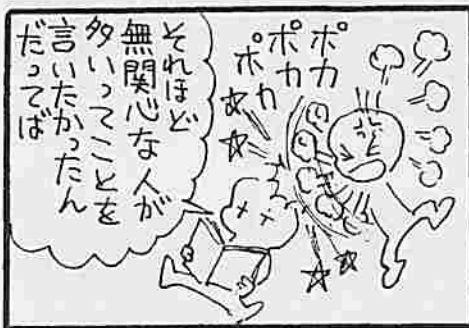 ポカ
ポカ
ポカ
それほど
無関心な人が
多いってことを
言いたかったん
だってば